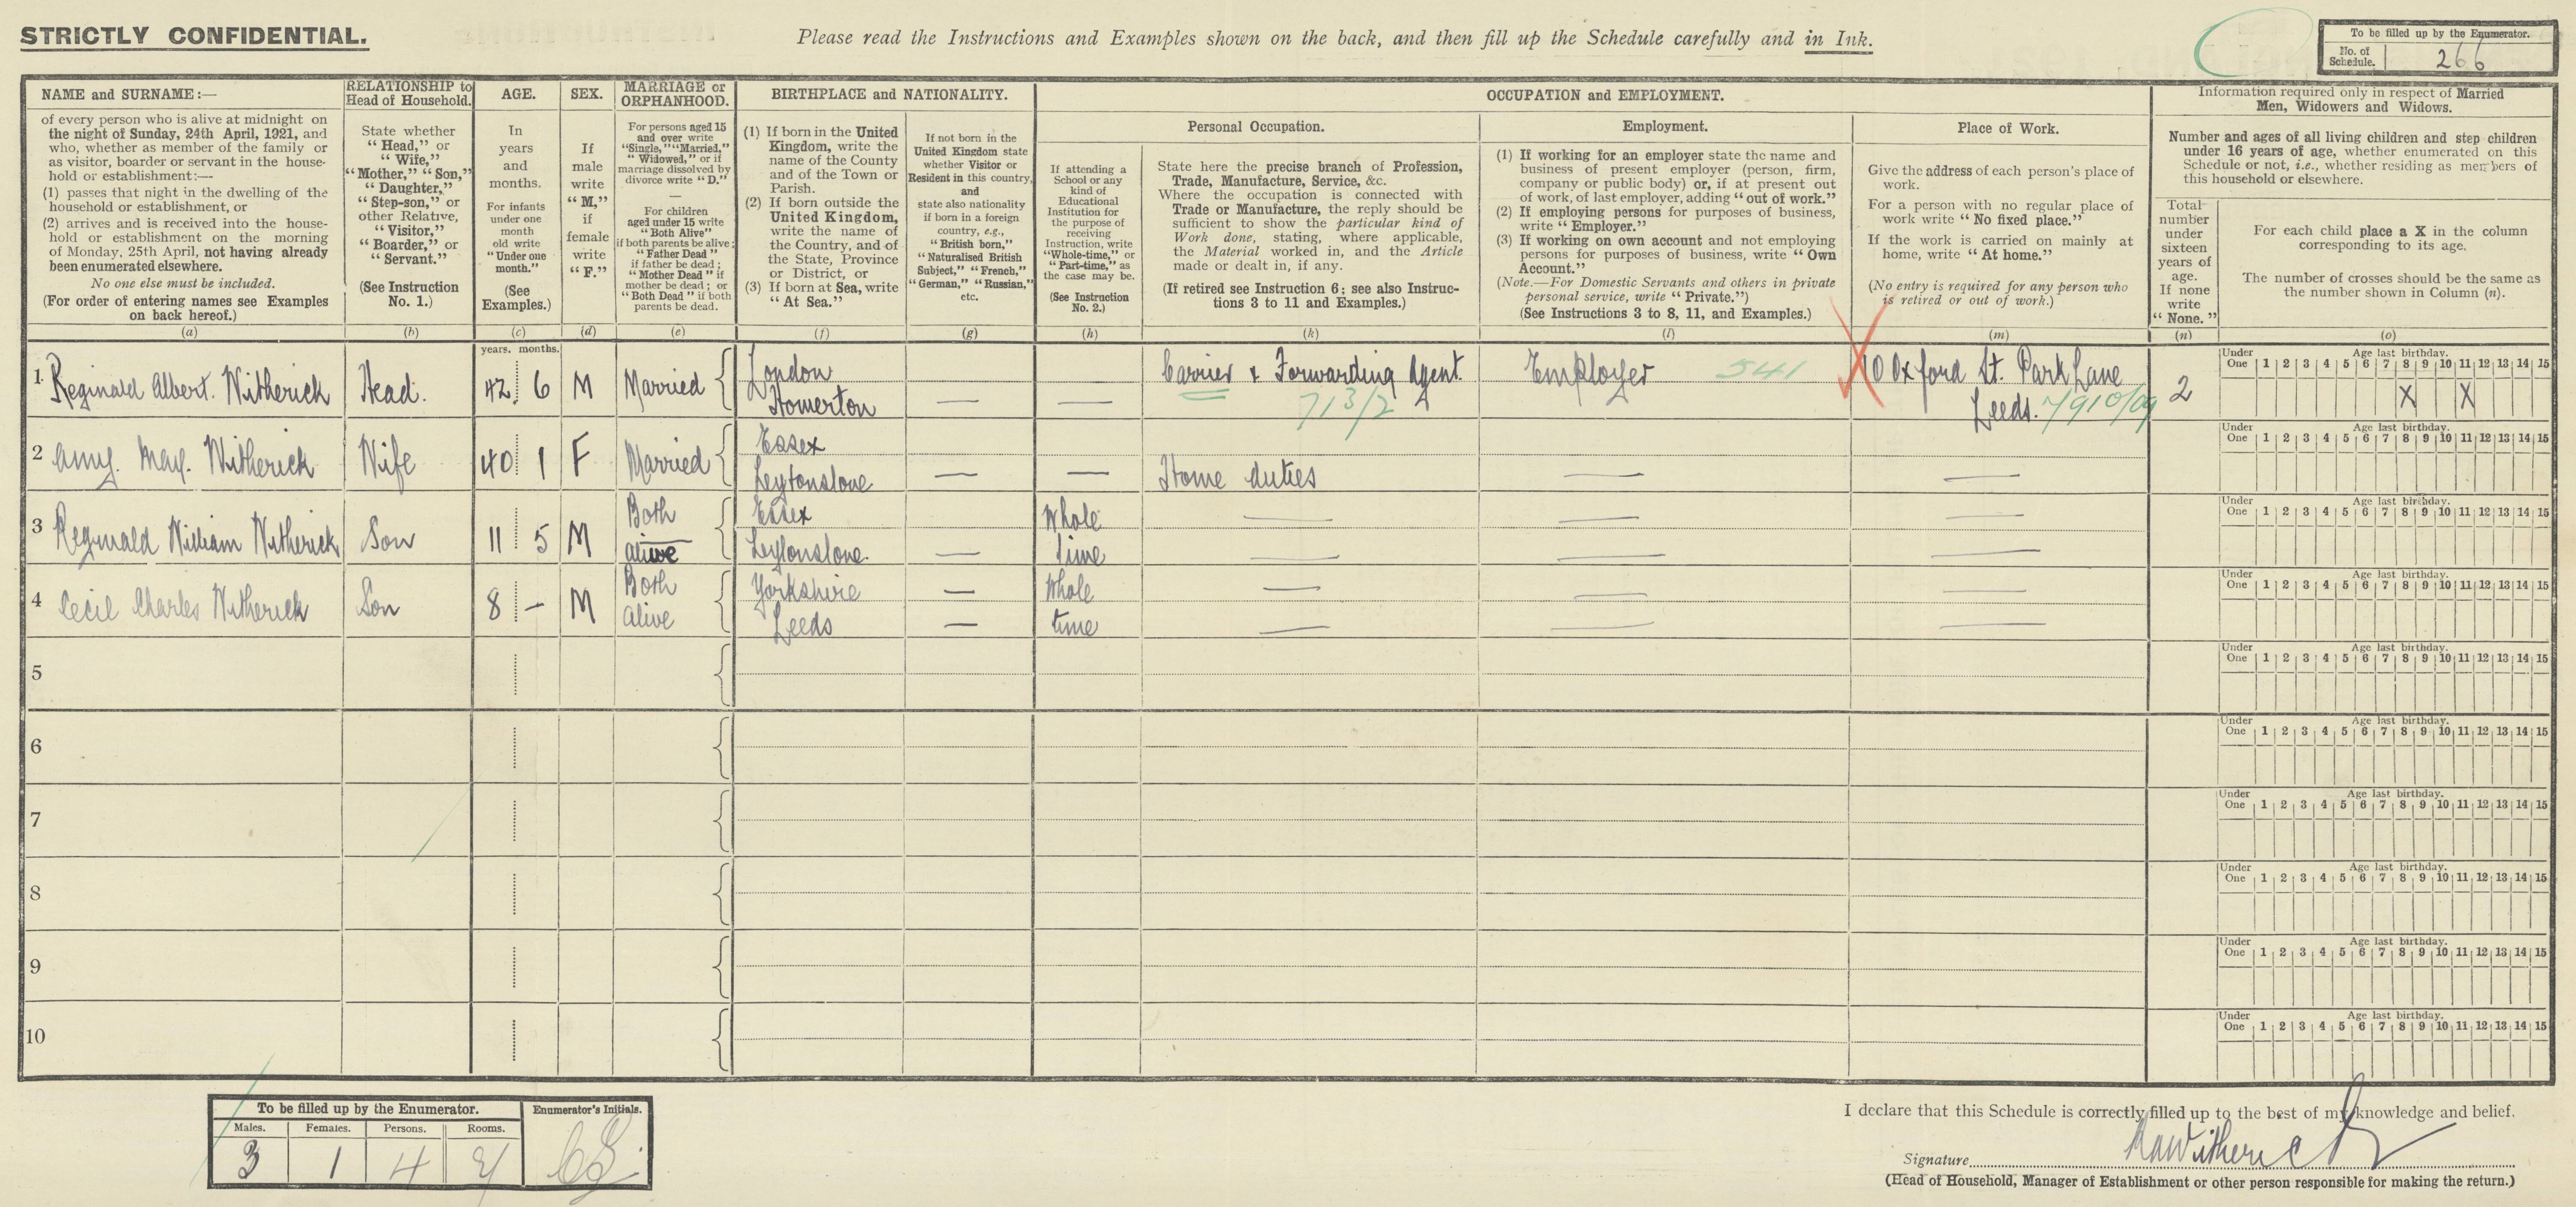 STRICTLY CONFIDENTIAL.
Please read the Instructions and Examples shown on the back, and then fill up the Schedule carefully and in Ink.
To be filled up by the Enumerator.
No. of Schedule. 266
NAME and SURNAME:—
of every person who is alive at midnight on
the night of Sunday, 24th April, 1921, and
who, whether as member of the family or
as visitor, boarder or servant in the house-
hold or establishment:—
(1) passes that night in the dwelling of the
household or establishment, or
(2) arrives and is received into the house-
hold or establishment on the morning
of Monday, 25th April, not having already
been enumerated elsewhere.
No one else must be included.
(For order of entering names see Examples
on back hereof.)
(a)
RELATIONSHIP to
Head of Household.
State whether
"Head," or
"Wife,"
"Mother," "Son,"
"Daughter,"
"Step-son," or
other Relative,
"Visitor,"
"Boarder," or
"Servant."
(See Instruction
No. 1.)
(b)
AGE.
In
years
and
months.
For infants
under one
month
old write
"Under one
month."
(See
Examples.)
(c)
SEX.
If
male
write
"M,"
if
female
write
"F."
(d)
MARRIAGE or
ORPHANHOOD.
For persons aged 15
and over write
"Single," "Married,"
"Widowed," or if
marriage dissolved by
divorce write "D."
—
For children
aged under 15 write
"Both Alive"
if both parents be alive;
"Father Dead"
if father be dead;
"Mother Dead" if
mother be dead; or
"Both Dead" if both
parents be dead.
(e)
BIRTHPLACE and NATIONALITY.
(1) If born in the United
Kingdom, write the
name of the County
and of the Town or
Parish.
(2) If born outside the
United Kingdom,
write the name of
the Country, and of
the State, Province
or District, or
(3) If born at Sea, write
"At Sea."
(f)
If not born in the
United Kingdom state
whether Visitor or
Resident in this country,
and
state also nationality
if born in a foreign
country, e.g.,
"British born,"
"Naturalised British
Subject," "French,"
"German," "Russian,"
etc.
(g)
OCCUPATION and EMPLOYMENT.
Personal Occupation.
If attending a
School or any
kind of
Educational
Institution for
the purpose of
receiving
Instruction, write
"Whole-time," or
"Part-time," as
the case may be.
(See Instruction
No. 2.)
(h)
State here the precise branch of Profession,
Trade, Manufacture, Service, &c.
Where the occupation is connected with
Trade or Manufacture, the reply should be
sufficient to show the particular kind of
Work done, stating, where applicable,
the Material worked in, and the Article
made or dealt in, if any.
(If retired see Instruction 6; see also Instruc-
tions 3 to 11 and Examples.)
(k)
Employment.
(1) If working for an employer state the name and
business of present employer (person, firm,
company or public body) or, if at present out
of work, of last employer, adding "out of work."
(2) If employing persons for purposes of business,
write "Employer."
(3) If working on own account and not employing
persons for purposes of business, write "Own
Account."
(Note.—For Domestic Servants and others in private
personal service, write "Private.")
(See Instructions 3 to 8, 11, and Examples.)
(l)
Place of Work.
Give the address of each person's place of
work.
For a person with no regular place of
work write "No fixed place."
If the work is carried on mainly at
home, write "At home."
(No entry is required for any person who
is retired or out of work.)
(m)
Information required only in respect of Married
Men, Widowers and Widows.
Number and ages of all living children and step children
under 16 years of age, whether enumerated on this
Schedule or not, i.e., whether residing as members of
this household or elsewhere.
Total
number
under
sixteen
years of
age.
If none
write
"None."
(n)
For each child place a X in the column
corresponding to its age.
The number of crosses should be the same as
the number shown in Column (n).
(o)
years. months.
1. Reginald Albert. Witherick Head. 42 6 M Married London Homerton — — Carrier & Forwarding Agent. 713/2 Employer 541 10 Oxford St. Park Lane Leeds. 7910/09 2
Under One Age last birthday. 1 2 3 4 5 6 7 8 9 10 11 12 13 14 15
X X
2 Amy. May. Witherick Wife 40 1 F Married Essex Leytonstone — — Home duties — —
Under One Age last birthday. 1 2 3 4 5 6 7 8 9 10 11 12 13 14 15
3 Reginald William Witherick Son 11 5 M Both alive Essex Leytonstone. — Whole time — — —
Under One Age last birthday. 1 2 3 4 5 6 7 8 9 10 11 12 13 14 15
4 Cecil Charles Witherick Son 8 — M Both Alive Yorkshire Leeds — Whole time — — —
Under One Age last birthday. 1 2 3 4 5 6 7 8 9 10 11 12 13 14 15
5
Under One Age last birthday. 1 2 3 4 5 6 7 8 9 10 11 12 13 14 15
6
Under One Age last birthday. 1 2 3 4 5 6 7 8 9 10 11 12 13 14 15
7
Under One Age last birthday. 1 2 3 4 5 6 7 8 9 10 11 12 13 14 15
8
Under One Age last birthday. 1 2 3 4 5 6 7 8 9 10 11 12 13 14 15
9
Under One Age last birthday. 1 2 3 4 5 6 7 8 9 10 11 12 13 14 15
10
Under One Age last birthday. 1 2 3 4 5 6 7 8 9 10 11 12 13 14 15
To be filled up by the Enumerator.
Males. Females. Persons. Rooms.
3 1 4
Enumerator's Initials.
I declare that this Schedule is correctly filled up to the best of my knowledge and belief.
Signature RAWitherick
(Head of Household, Manager of Establishment or other person responsible for making the return.)